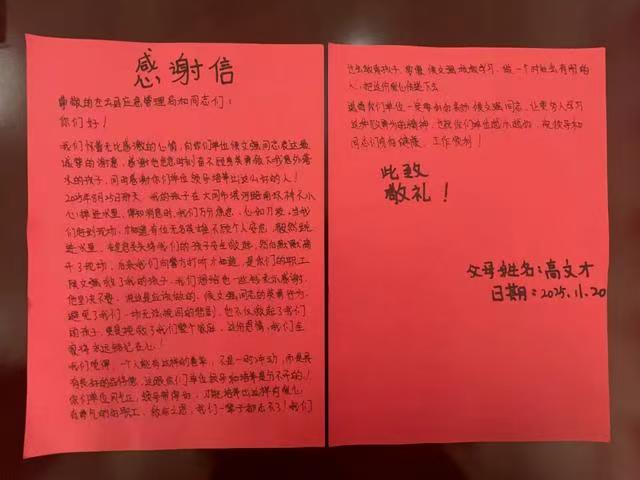 感谢信
尊敬的左云县应急管理局和同志们：
你们好！
我们怀着无比感激的心情，向你们单位侯文强同志表达最
诚挚的谢意，感谢他危急时刻奋不顾身英勇救下我意外落
水的孩子，同时感谢你们单位领导培养出这么好的人！
2025年8月25日那天，我的孩子在大同市
心掉进水里，得知消息时，我们万分焦急，心如刀绞，当我
们赶到现场，才知道有位无名英雄不顾个人安危，毅然跳
进水里，我们的孩子安全救起，然后默默离
开了现场，后来我们向警方打听才知道，是你们的职工
侯文强救了我的孩子，我们想给他一些钱表示感谢，
他坚决不要，说这是应该做的，侯文强同志的英勇行为，
避免了我们一场无法挽回的悲剧，他不仅救起了我们
的孩子，更是挽救了我们整个家庭，这份恩情，我们全
家将永远铭记在心！
我们觉得，一个人能有这样的善举，不是一时冲动，而是具
有良好的品德，这跟你们单位领导和培养是分不开的！
你们单位风气正，领导带得好，才能培养出这样有爱心，
有勇气的好职工，救命之恩，我们一辈子都忘不了！我们
也会教育孩子，要像侯文强叔叔学习，做一个对社会有用的
人，把这份爱心传递下去
恳请你们单位一定要好好表扬侯文强同志，让更多人学习
这种见义勇为的精神，也祝你们单位越来越好，祝领导和
同志们身体健康，工作顺利！
此致
敬礼！
父母姓名：高文才
日期：2025.11.20